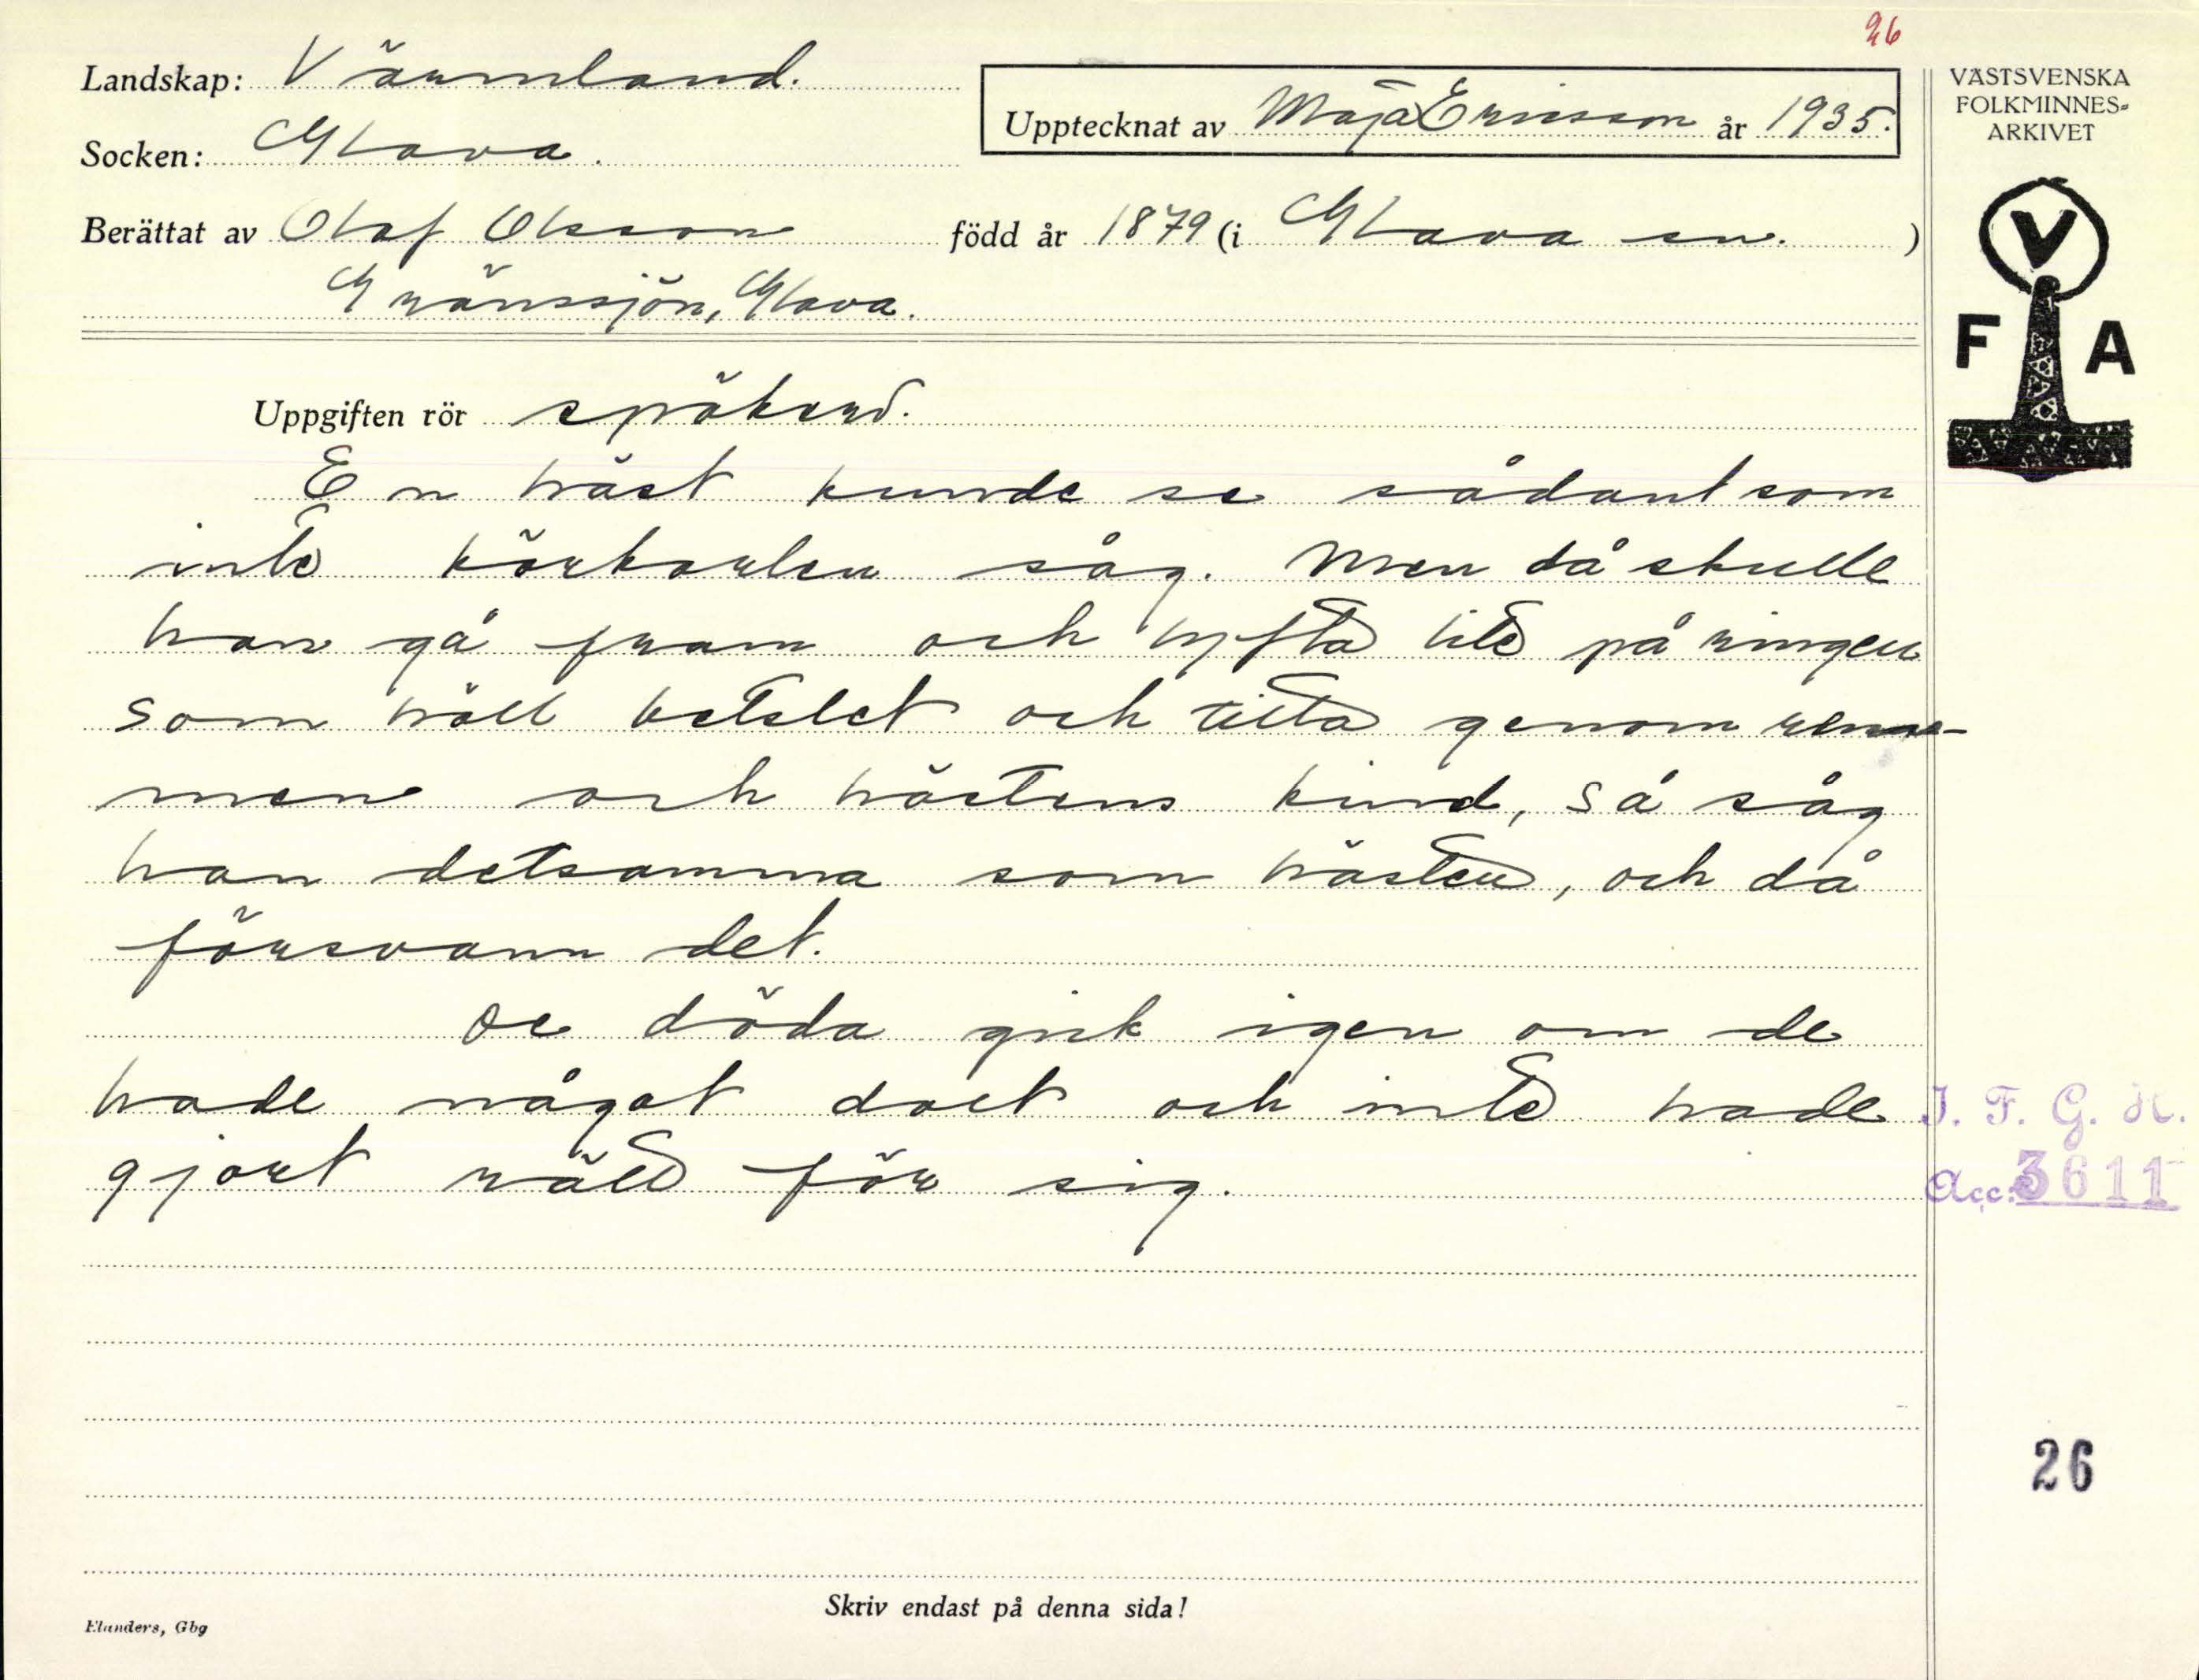 26
Landskap: Värmland.
Socken: Glava.
Upptecknat av Maja Ericsson år 1935.
Berättat av Olaf Olsson född år 1879 (i Glava sn. )
Gränssjön, Glava.
VÄSTSVENSKA
FOLKMINNES-
ARKIVET
V
F A
Uppgiften rör spökeri.
En häst kunde se sådant som
inte körkarlen såg. Men då skulle
han gå fram och lyfta lite på ringen
som höll betslet och titta genom rem-
men och hästens kind, så såg
han detsamma som hästen, och då
försvann det.
De döda gick igen om de
hade något dolt och inte hade
gjort rätt för sig.
I. F. G. H.
Acc: 3611
26
Skriv endast på denna sida!
Elanders, Gbg